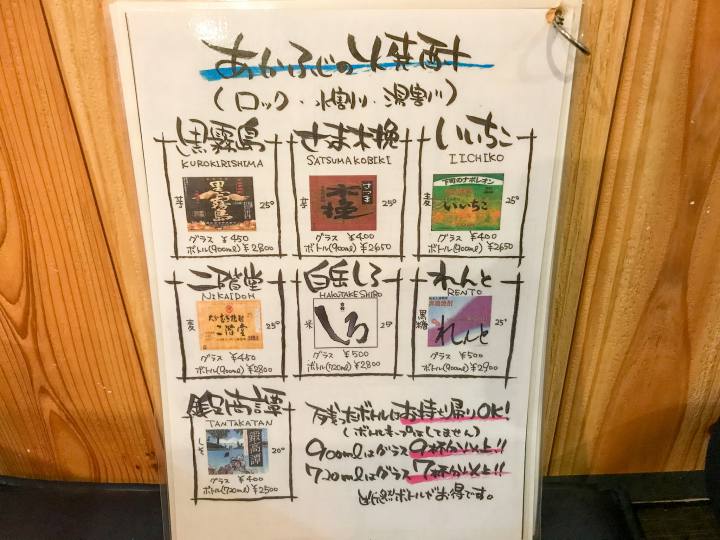 あかふじの焼酎
(ロック・水割り・湯割り)
黒霧島
KUROKIRISHIMA
芋
黒霧島
25°
グラス ¥450
ボトル(900ml)¥2800
さつま木挽
SATSUMAKOBIKI
芋
さつま
木挽
25°
グラス ¥400
ボトル(900ml)¥2650
いいちこ
IICHIKO
麦
下町のナポレオン
いいちこ
25°
グラス ¥400
ボトル(900ml)¥2650
二階堂
NIKAIDOH
麦
大分むぎ焼酎
二階堂
25°
グラス ¥450
ボトル(900ml)¥2800
白岳しろ
HAKUTAKE SHIRO
米
しろ
25°
グラス ¥500
ボトル(720ml)¥2800
れんと
RENTO
黒糖
黒糖焼酎
れんと
25°
グラス ¥500
ボトル(900ml)¥2900
鍛高譚
TANTAKATAN
しそ
鍛高譚
20°
グラス ¥400
ボトル(720ml)¥2500
残ったボトルはお持ち帰りOK!
(ボトルキープはしてません)
900mlはグラス9杯分以上!!
720mlはグラス7杯分以上!!
断然ボトルがお得です。